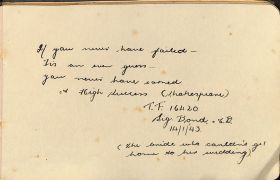 If you never have failed –
'Tis an even guess –
you never have earned
A High Success (Shakespeare)
T.F. 16420
Sig Bond. E.R
14/1/43
(the bride who couldn't get
home to her wedding)